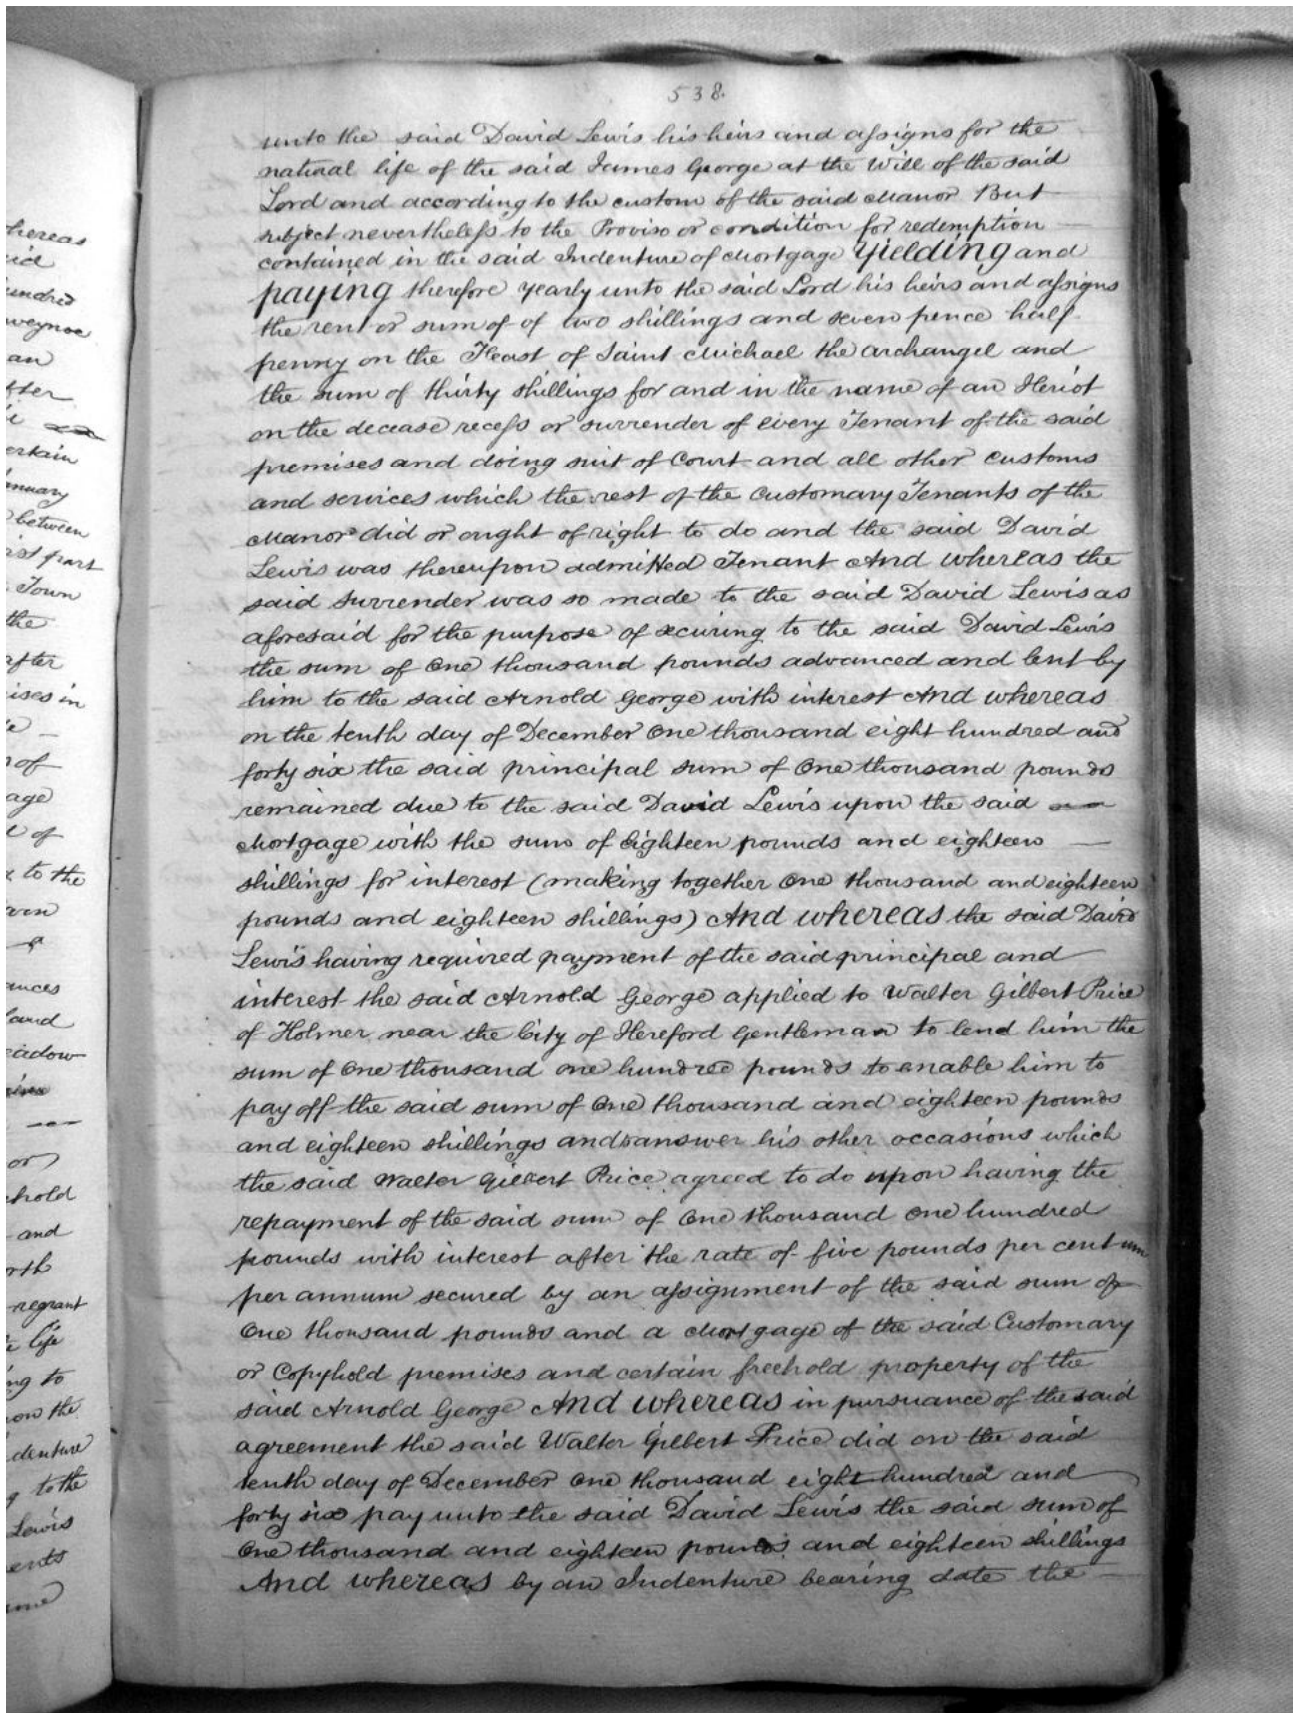 538.
unto the said David Lewis his heirs and assigns for the
natural life of the said James George at the Will of the said
Lord and according to the custom of the said Manor But
subject nevertheless to the Proviso or condition for redemption
contained in the said Indenture of Mortgage Yielding and
paying therefore yearly unto the said Lord his heirs and assigns
the rent or sum of of two shillings and seven pence half
penny on the Feast of Saint Michael the archangel and
the sum of thirty shillings for and in the name of an Heriot
on the decease recess or surrender of every Tenant of the said
premises and doing suit of Court and all other customs
and services which the rest of the Customary Tenants of the
Manor did or ought of right to do and the said David
Lewis was thereupon admitted Tenant And whereas the
said Surrender was so made to the said David Lewis as
aforesaid for the purpose of securing to the said David Lewis
the sum of One thousand pounds advanced and lent by
him to the said Arnold George with interest And whereas
on the tenth day of December One thousand eight hundred and
forty six the said principal sum of One thousand pounds
remained due to the said David Lewis upon the said
Mortgage with the sum of Eighteen pounds and eighteen
shillings for interest (making together One thousand and eighteen
pounds and eighteen shillings) And whereas the said David
Lewis having required payment of the said principal and
interest the said Arnold George applied to Walter Gilbert Price
of Holmer near the City of Hereford Gentleman to lend him the
sum of One thousand one hundred pounds to enable him to
pay off the said sum of One thousand and eighteen pounds
and eighteen shillings and answer his other occasions which
the said Walter Gilbert Price agreed to do upon having the
repayment of the said sum of One thousand one hundred
pounds with interest after the rate of five pounds per centum
per annum secured by an assignment of the said sum of
One thousand pounds and a Mortgage of the said Customary
or Copyhold premises and certain freehold property of the
said Arnold George And whereas in pursuance of the said
agreement the said Walter Gilbert Price did on the said
tenth day of December One thousand eight hundred and
forty six pay unto the said David Lewis the said sum of
One thousand and eighteen pounds and eighteen shillings
And whereas by an Indenture bearing date the